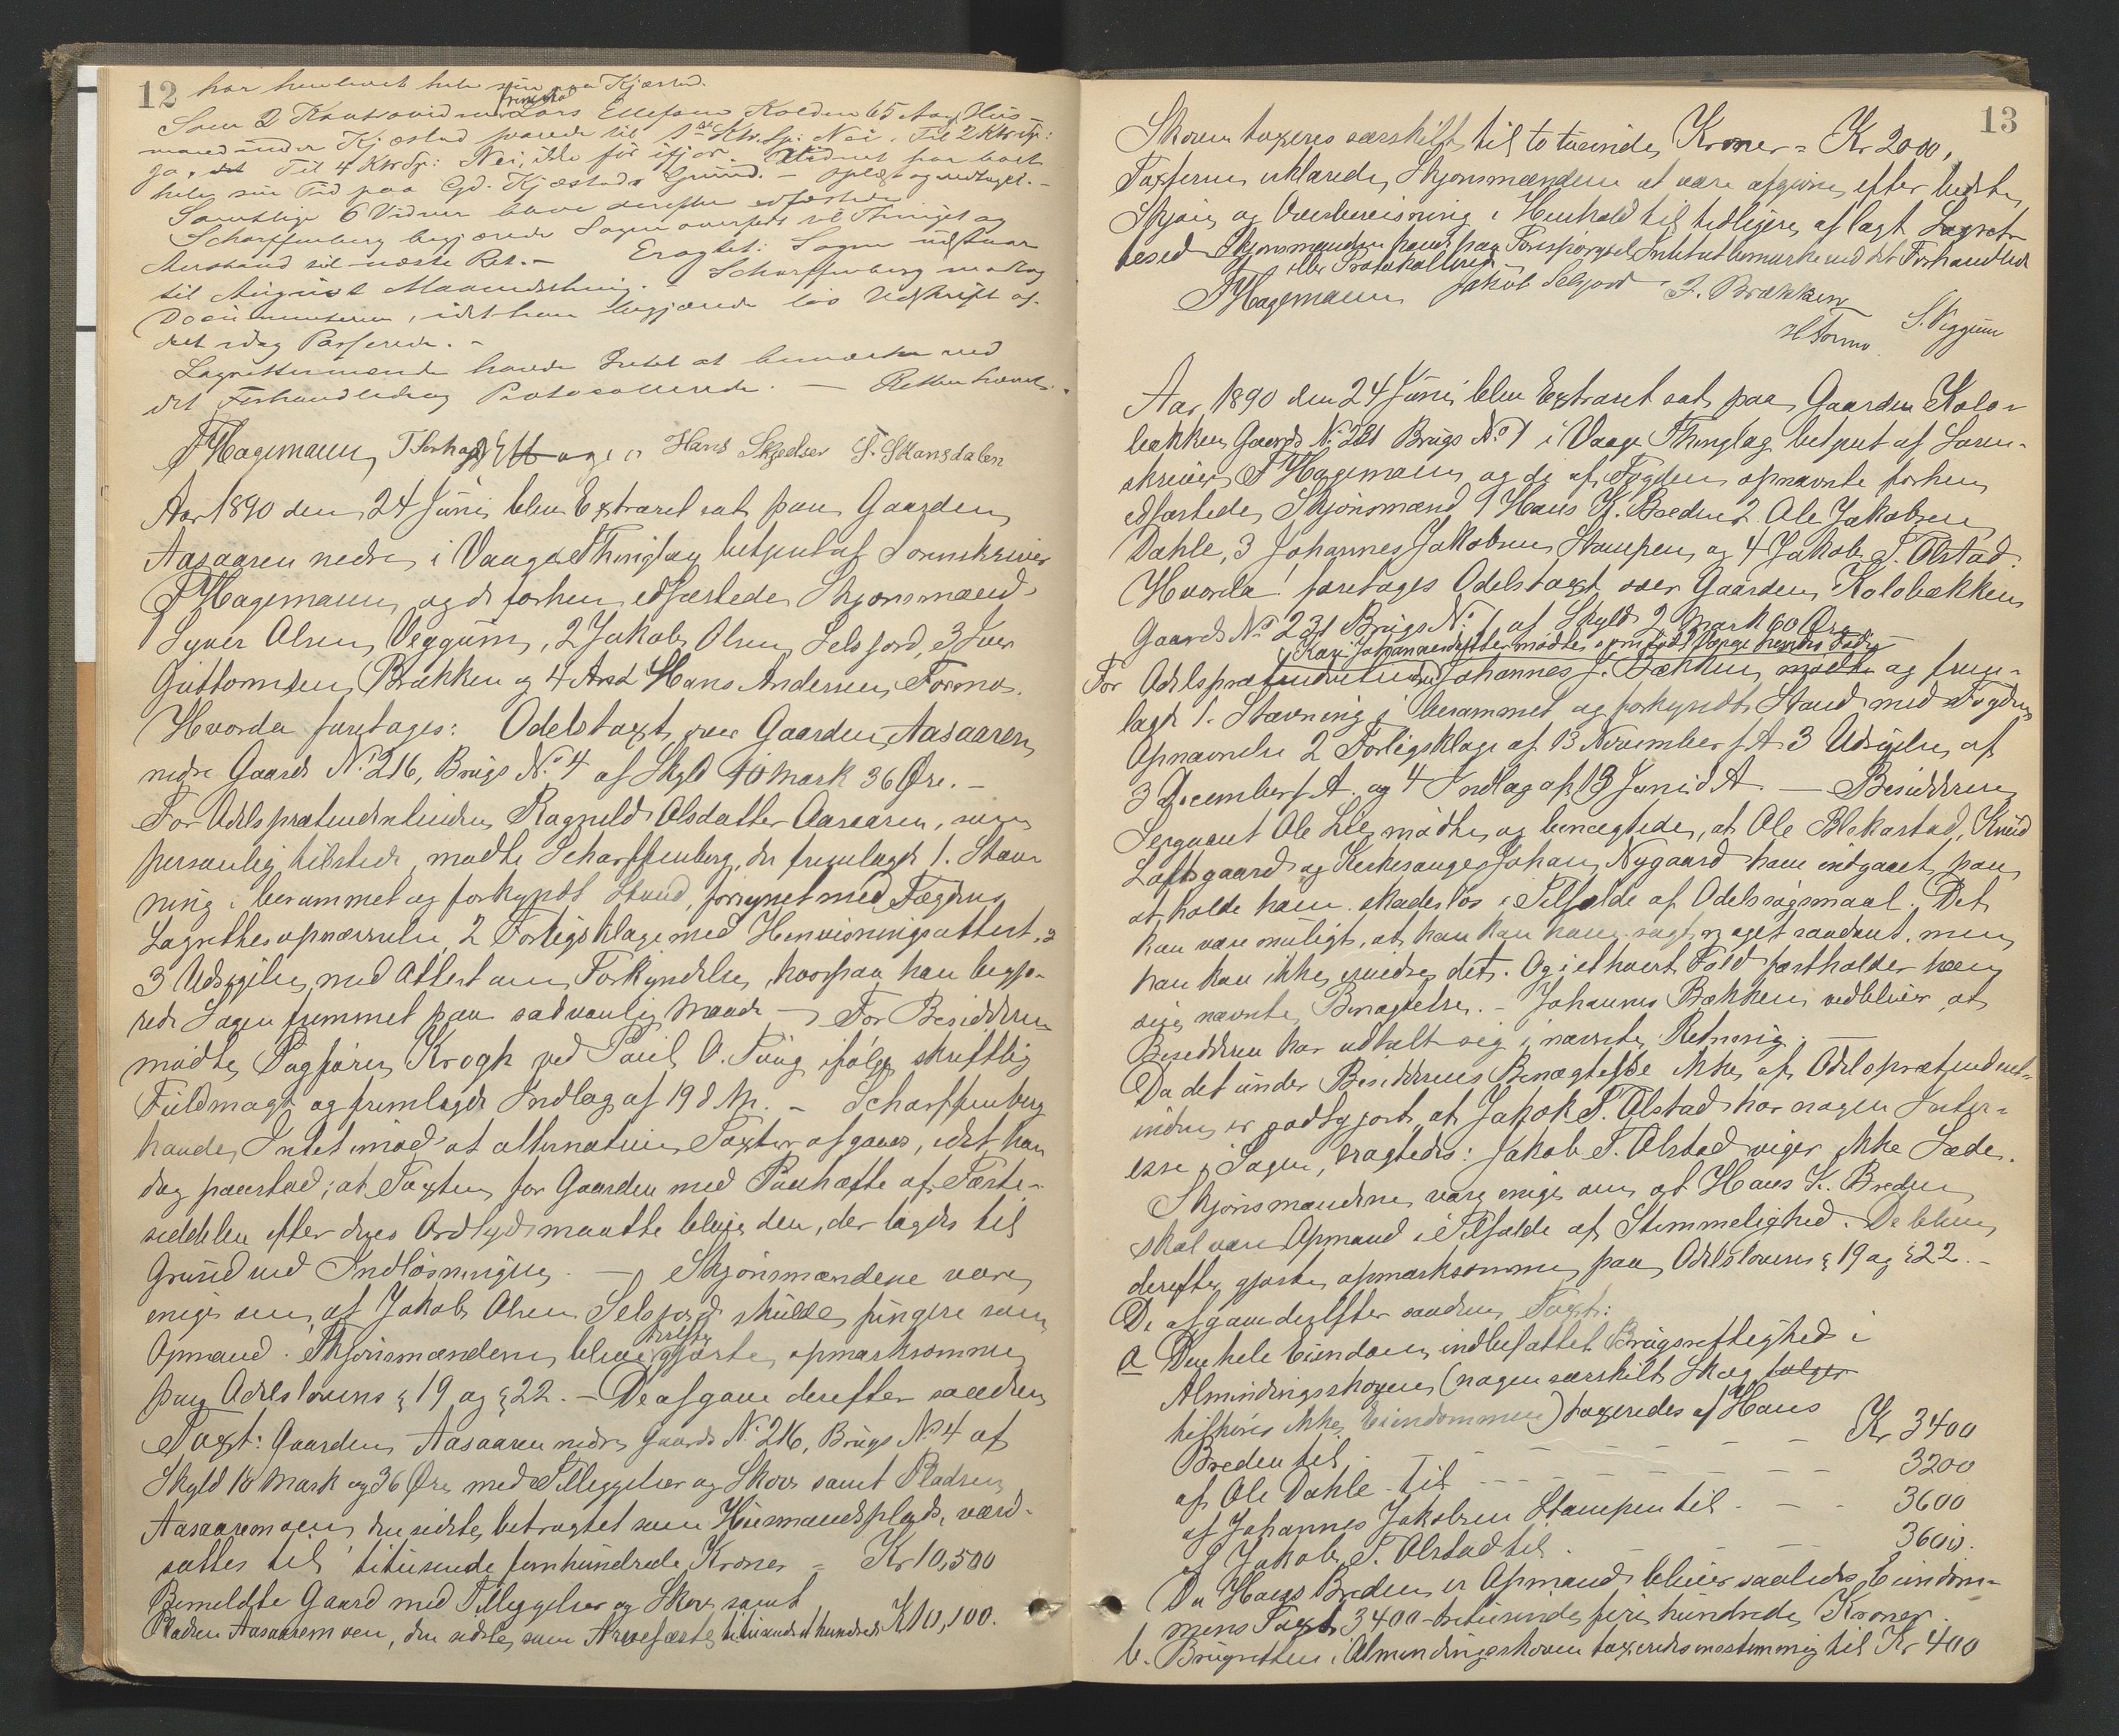 12
har henlevet hele sin paa Kjæstad.
Som 2 Kontravidne fremstod Lars Ellefsen Kolden 65 Aar, Hus-
mand under Kjæstad svarede til 1ste Ktr.Sp: Nei. Til 2 Ktr.Sp:
ja. Til 4 Ktr Sp: Nei, ikke før ifjor. Vidnet har boet
hele sin Tid paa Gd. Kjæstads Grund. – Oplæst og vedtaget. –
Samtlige 6 Vidner bleve derefter edfæstede
Scharffenberg begjærede Sagen overført til Thinget og
Anstand til næste Ret. – Eragtet: Sagen udstaar
til August Maanedsthing. – Scharffenberg modtog
Documenterne, idet han begjærede løs Udskrift af
det idag Passerede. –
Lagrettemændene havde Intet at bemærke ved
det Forhandlede og Protocollerede. – Retten hævet.
F Hagemann Hans Skjedser S. Skansdalen
Aar 1890 den 24 Juni blev Extraret sat paa Gaarden
Aasaaren nedre i Vaage Thinglag betjent af Sorenskriver
F Hagemann og de forhen edfæstede Skjønsmænd
Syver Olsen Veggum, 2 Jakob Olsen Selsjord, 3 Iver
Guttormsen Brækken og 4 And Hans Andersen Formo.
Hvorda foretages: Odelstaxt over Gaarden Aasaaren
nedre Gaards No. 216, Brugs No. 4 af Skyld 10 Mark 36 Øre. –
For Odelsprætendentinden Ragnild Olsdatter Aasaaren, som
personlig tilstede, mødte Scharffenberg, der fremlagde 1. Stæv-
ning i berammet og forkyndt Stand, forsynet med Fogdens
Lagrettesopnævnelse, 2 Forligsklage med Henvisningsattest,
3 Udsigelse med Attest om Forkyndelse, hvorpaa han begjæ-
rede Sagen fremmet paa sædvanlig Maade – For Besidderen
mødte Sagfører Krogh ved Paul O. Tung ifølge skriftlig
Fuldmagt og fremlagde Indlæg af 19 d M. – Scharffenberg
havde Intet imod at alternative Taxter afgaves, idet han
dog paastod, at Taxten for Gaarden med Paahæfte af Fæste-
seddelen efter dens Ordlyd maatte blive den, der lagdes til
Grund ved Indløsningen. – Skjønsmændene vare
enige om, at Jakob Olsen Selsjord skulde fungere som
Opmand. Skjønsmændene bleve derefter gjorte opmærksomme
paa Odelslovens § 19 og § 22. – De afgave derefter saadan
Taxt: Gaarden Aasaaren nedre Gaards No. 216, Brugs No. 4 af
Skyld 10 Mark og 36 Øre med Tilleggelser og Skov samt Pladsen
Aasaaremoen, den sidste betragtet som Husmandsplads, værd-
sattes til titusende femhundrede Kroner = Kr 10,500
Bemeldte Gaard med Tilleggelser og Skov samt
Pladsen Aasaaremoen, den sidste som Arvefæste, titusende et hundrede Kr 10,100.
13
Skoven taxeres særskilt til to tusinde Kroner = Kr 2000,
Taxterne erklærede Skjønsmændene at være afgivne efter bedste
Skjøn og Overbevisning i Henhold til tidligere aflagt Lagret-
tesed Skjønsmændene havde paa Forespørgsel Intet at bemærke ved det Forhandlede
eller Protokollerede –
F Hagemann Jakob Selsjord I. Brækken
H Formo S. Veggum
Aar 1890 den 24 Juni blev Extraret sat paa Gaarden Kolo-
bækken Gaards No. 231 Brugs No. 1 i Vaage Thinglag betjent af Soren-
skriver F Hagemann og de af Fogden opnævnte forhen
edfæstede Skjønsmænd 1 Hans K. Breden 2. Ole Jakobsen
Dahle, 3 Johannes Jakobsen Stampen og 4 Jakob T. Olstad.
Hvorda! foretages Odelstaxt over Gaarden Kolobækken
Gaards No. 231 Brugs No. 1 af Skyld 2 Mark 60 Øre.
Kari Johannesdatter mødte som født Værge hendes Fader
For Odelsprætendentinden Johannes J. Bækken mødte og frem-
lagde 1. Stævning i berammet og forkyndt Stand med Fogdens
Opnævnelse 2 Forligsklage af 13 November f. A. 3 Udsigelse af
3 December f. A. og 4 Indlæg af 13 Juni d. A. – Besidderen
Sergeant Ole Lie mødte og benegtede, at Ole Blekastad, Knud
Loftsgaard og Kirkesanger Johan Nygaard have indgaaet paa
at holde ham skadesløs i Tilfælde af Odelssøgsmaal. Det
kan være muligt, at han kan have sagt noget saadant, men
han kan ikke erindre det. Og i ethvert Fald fastholder han
sin nævnte Benægtelse. – Johannes Bækken vedbliver, at
Besidderen har udtalt sig i nævnte Retning. –
Da det under Besidderens Benægtelse ikke af Odelsprætendent-
inden er godtgjort, at Jakob T. Olstad har nogen Inter-
esse i Sagen, eragtedes: Jakob T. Olstad viger ikke Sæde.
Skjønsmændene vare enige om, at Hans K. Breden
skal være Opmand i Tilfælde af Stemmelighed. De bleve
derefter gjorte opmærksomme paa Odelslovens § 19 og § 22. –
De afgave derefter saadan Taxt:
a Den hele Eiendom, indbefattet Brugsrettighed i
Almindingsskogen (nogen særskilt Skog følger
tilhører ikke Eiendommen) taxeredes af Hans
Breden til – – – – – – Kr 3400
af Ole Dahle til – – – – – – 3200
af Johannes Jakobsen Stampen til – – 3600
af Jakob T. Olstad til – – – – 3600.
Da Hans Breden er Opmand bliver saaledes Eiendom-
mens Taxt 3400 – tretusinde fire hundrede Kroner.
b. Brugsretten i Almindingsskoven taxeredes enstemmig til Kr 400